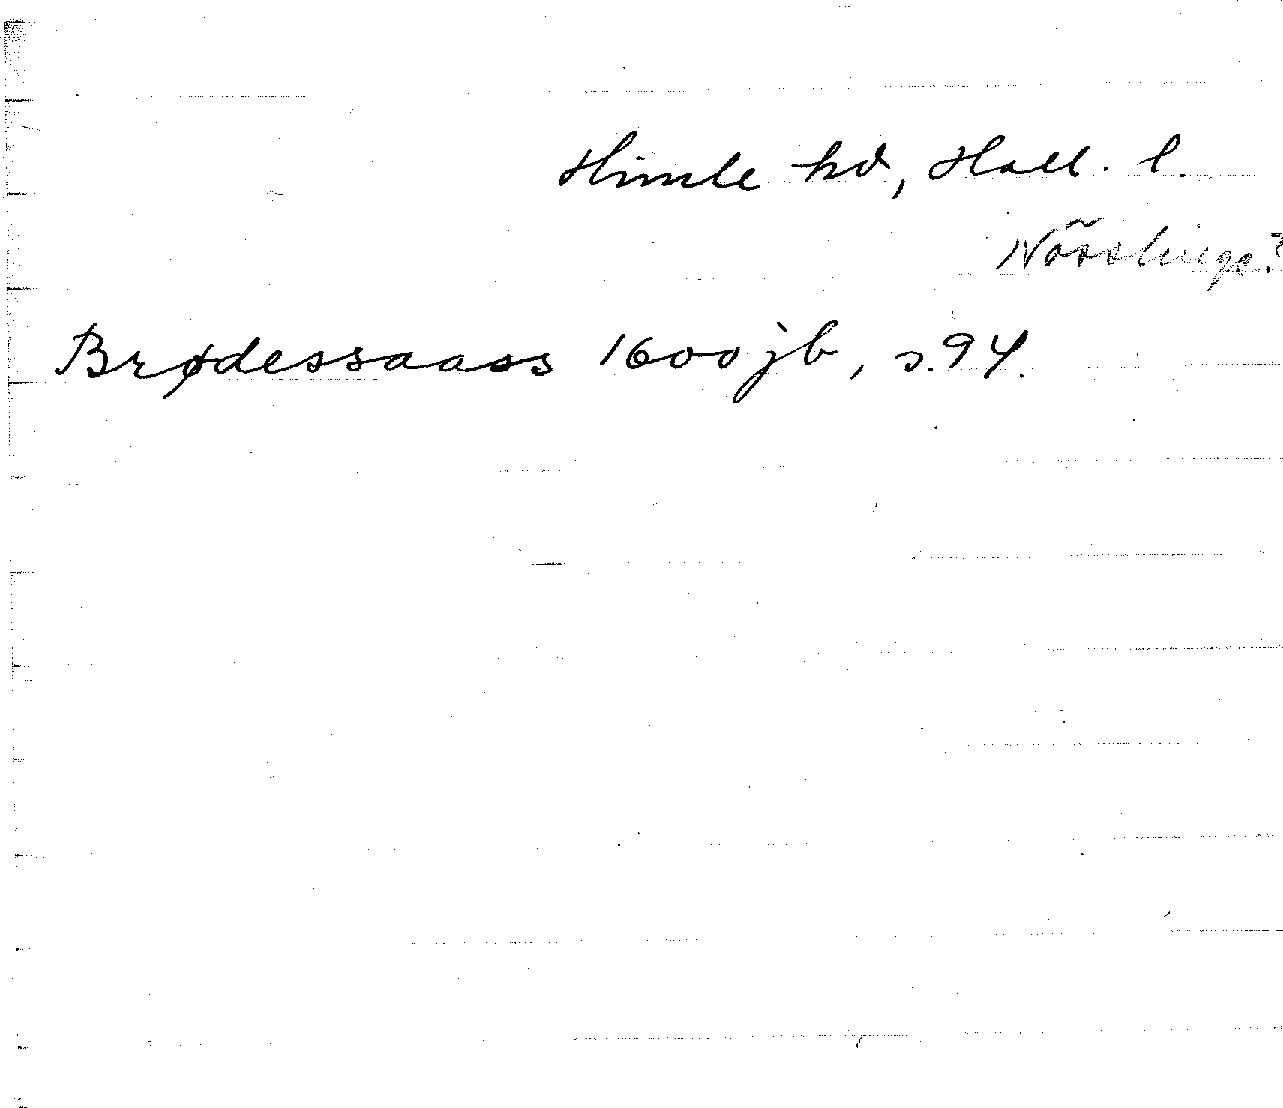 Himle hd, Hall. l.
Nösslinge?
Brødessaass 1600 jb, s. 94.